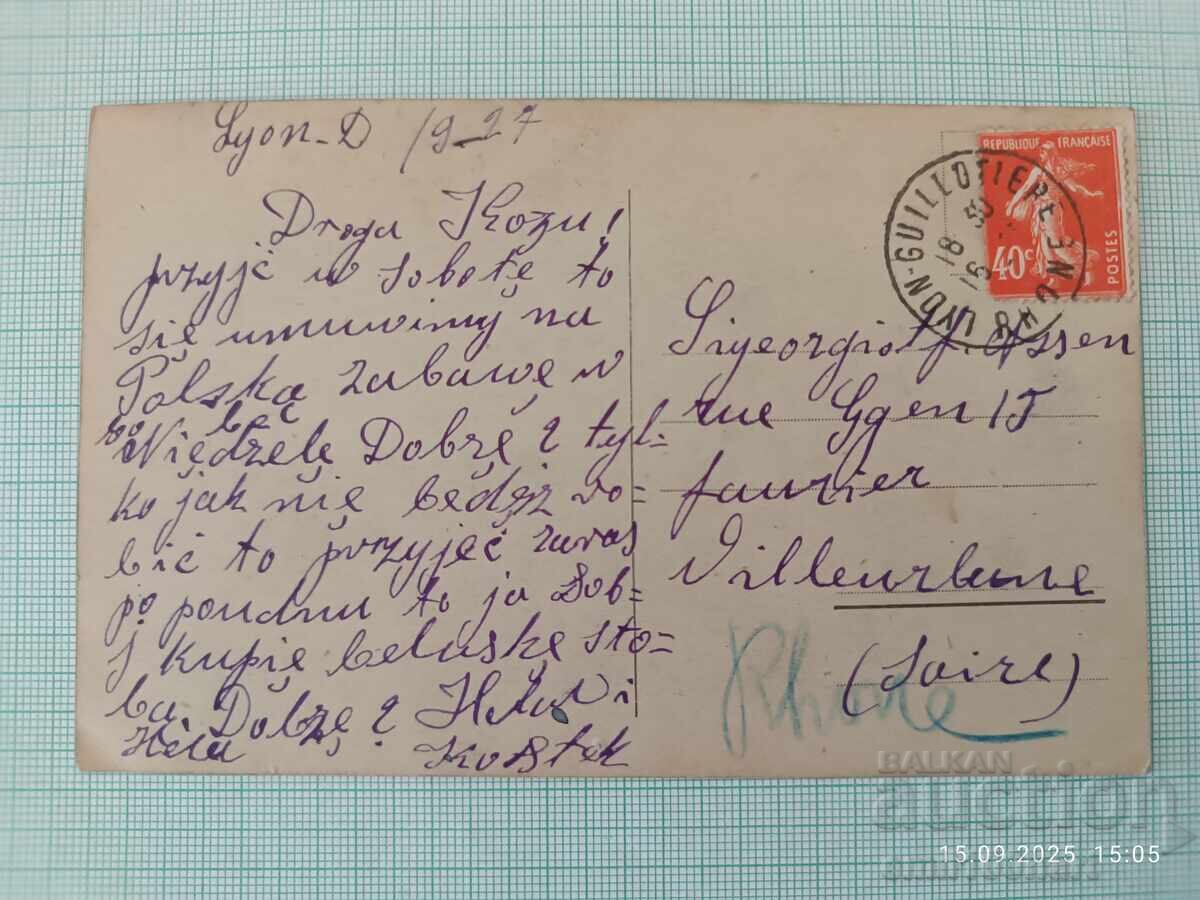 Lyon-D 19-27
Droga Kozu!
przyjć w sobotę to
się umuwimy na
Polską zabawę w
bo bę
Niedzelę Dobrzę? tyl=
ko jak nie bedez ro=
bić to przyjeć zaras
po poudnu to ja Sob=
i kupię beluskę sto=
ba. Dobrzę?
Hela Kostek
REPUBLIQUE FRANÇAISE
40c
POSTES
LYON-GUILLOTIERE
RHONE
18 30
rue Ggen 15
faurier
Villeurbune
(Loire)
Rhone
BALKAN
auction
15.09.2025 15:05